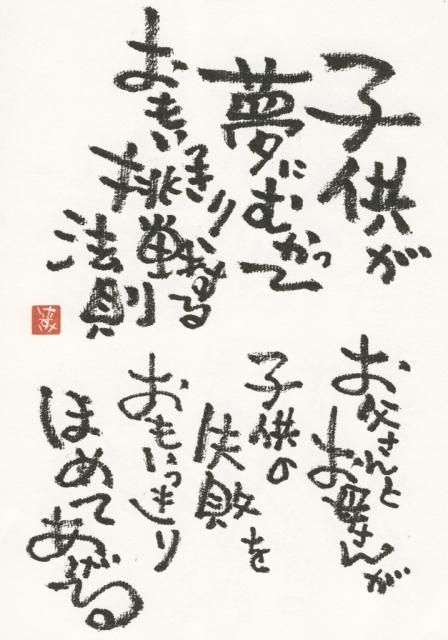 子供が
夢にむかって
おもいっきり
挑戦する
法則
お父さんと
お母さんが
子供の
失敗を
おもいっきり
ほめて
あげる